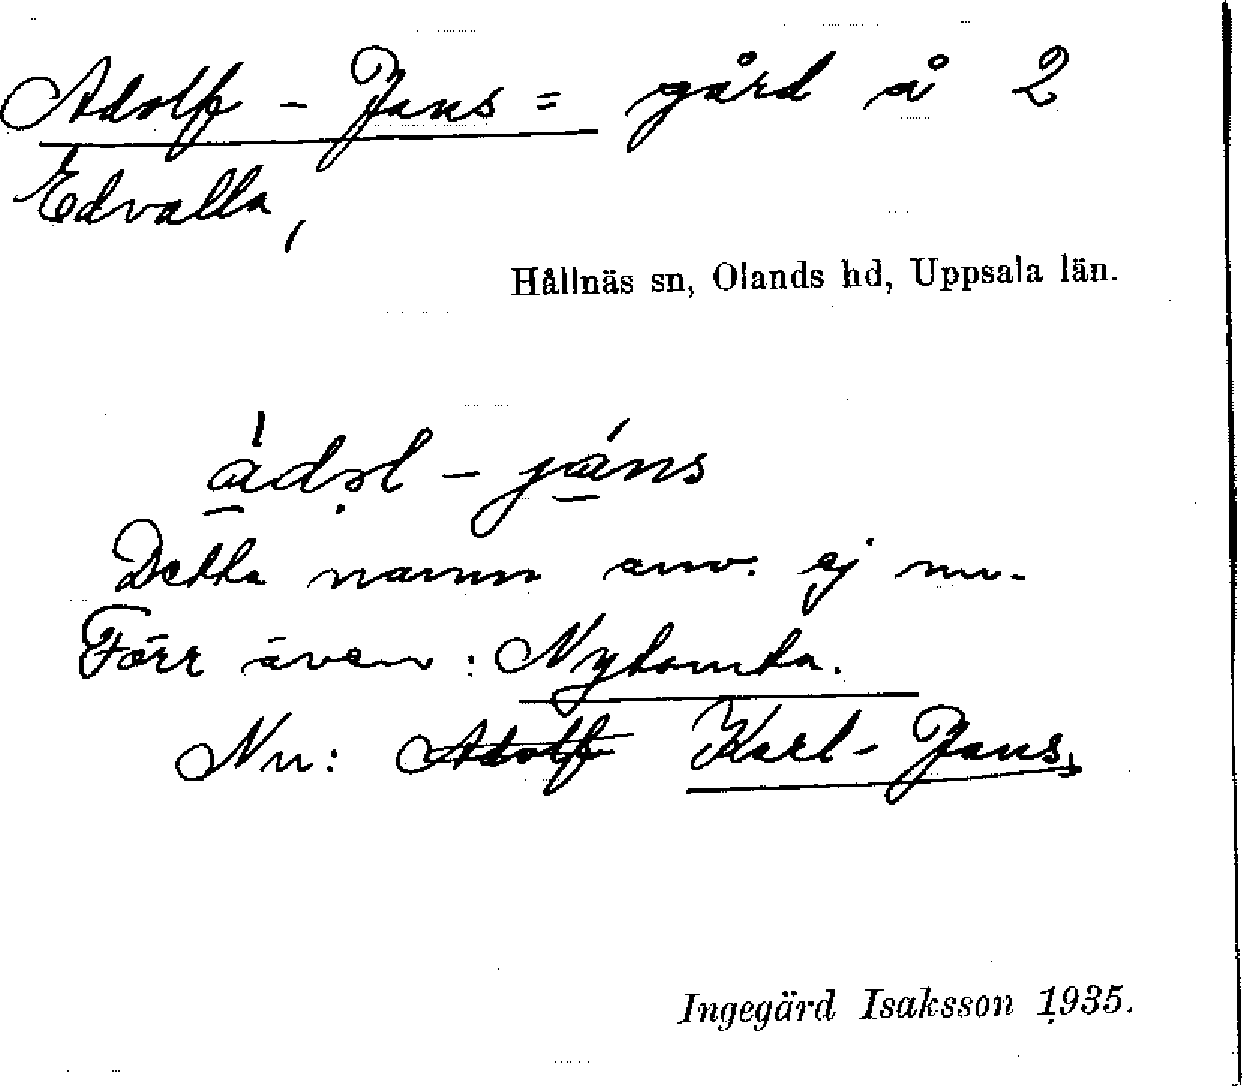 Adolf - Jans = gård å 2
Edvalla,
Hållnäs sn, Olands hd, Uppsala län.
ádəl - jáns
Detta namn anv. ej nu.
Förr även: Nytomta.
Nu: Adolf Karl-Jans,
Ingegärd Isaksson 1935.